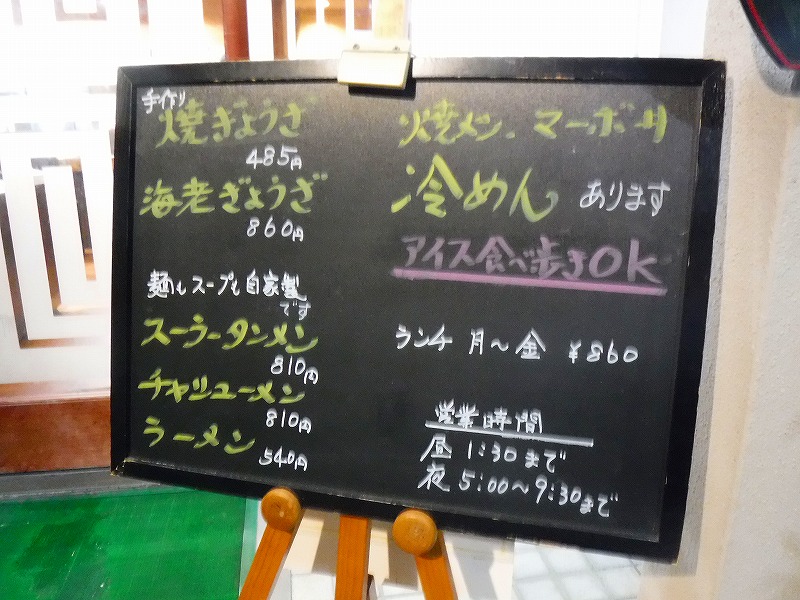 手作り
焼ぎょうざ
485円
海老ぎょうざ
860円
麺もスープも自家製
です
スーラータンメン
810円
チャツューメン
810円
ラーメン
540円
焼メン、マーボー丼
冷めん あります
アイス食べ歩きOK
ランチ 月～金 ¥860
営業時間
昼 1:30まで
夜 5:00～9:30まで